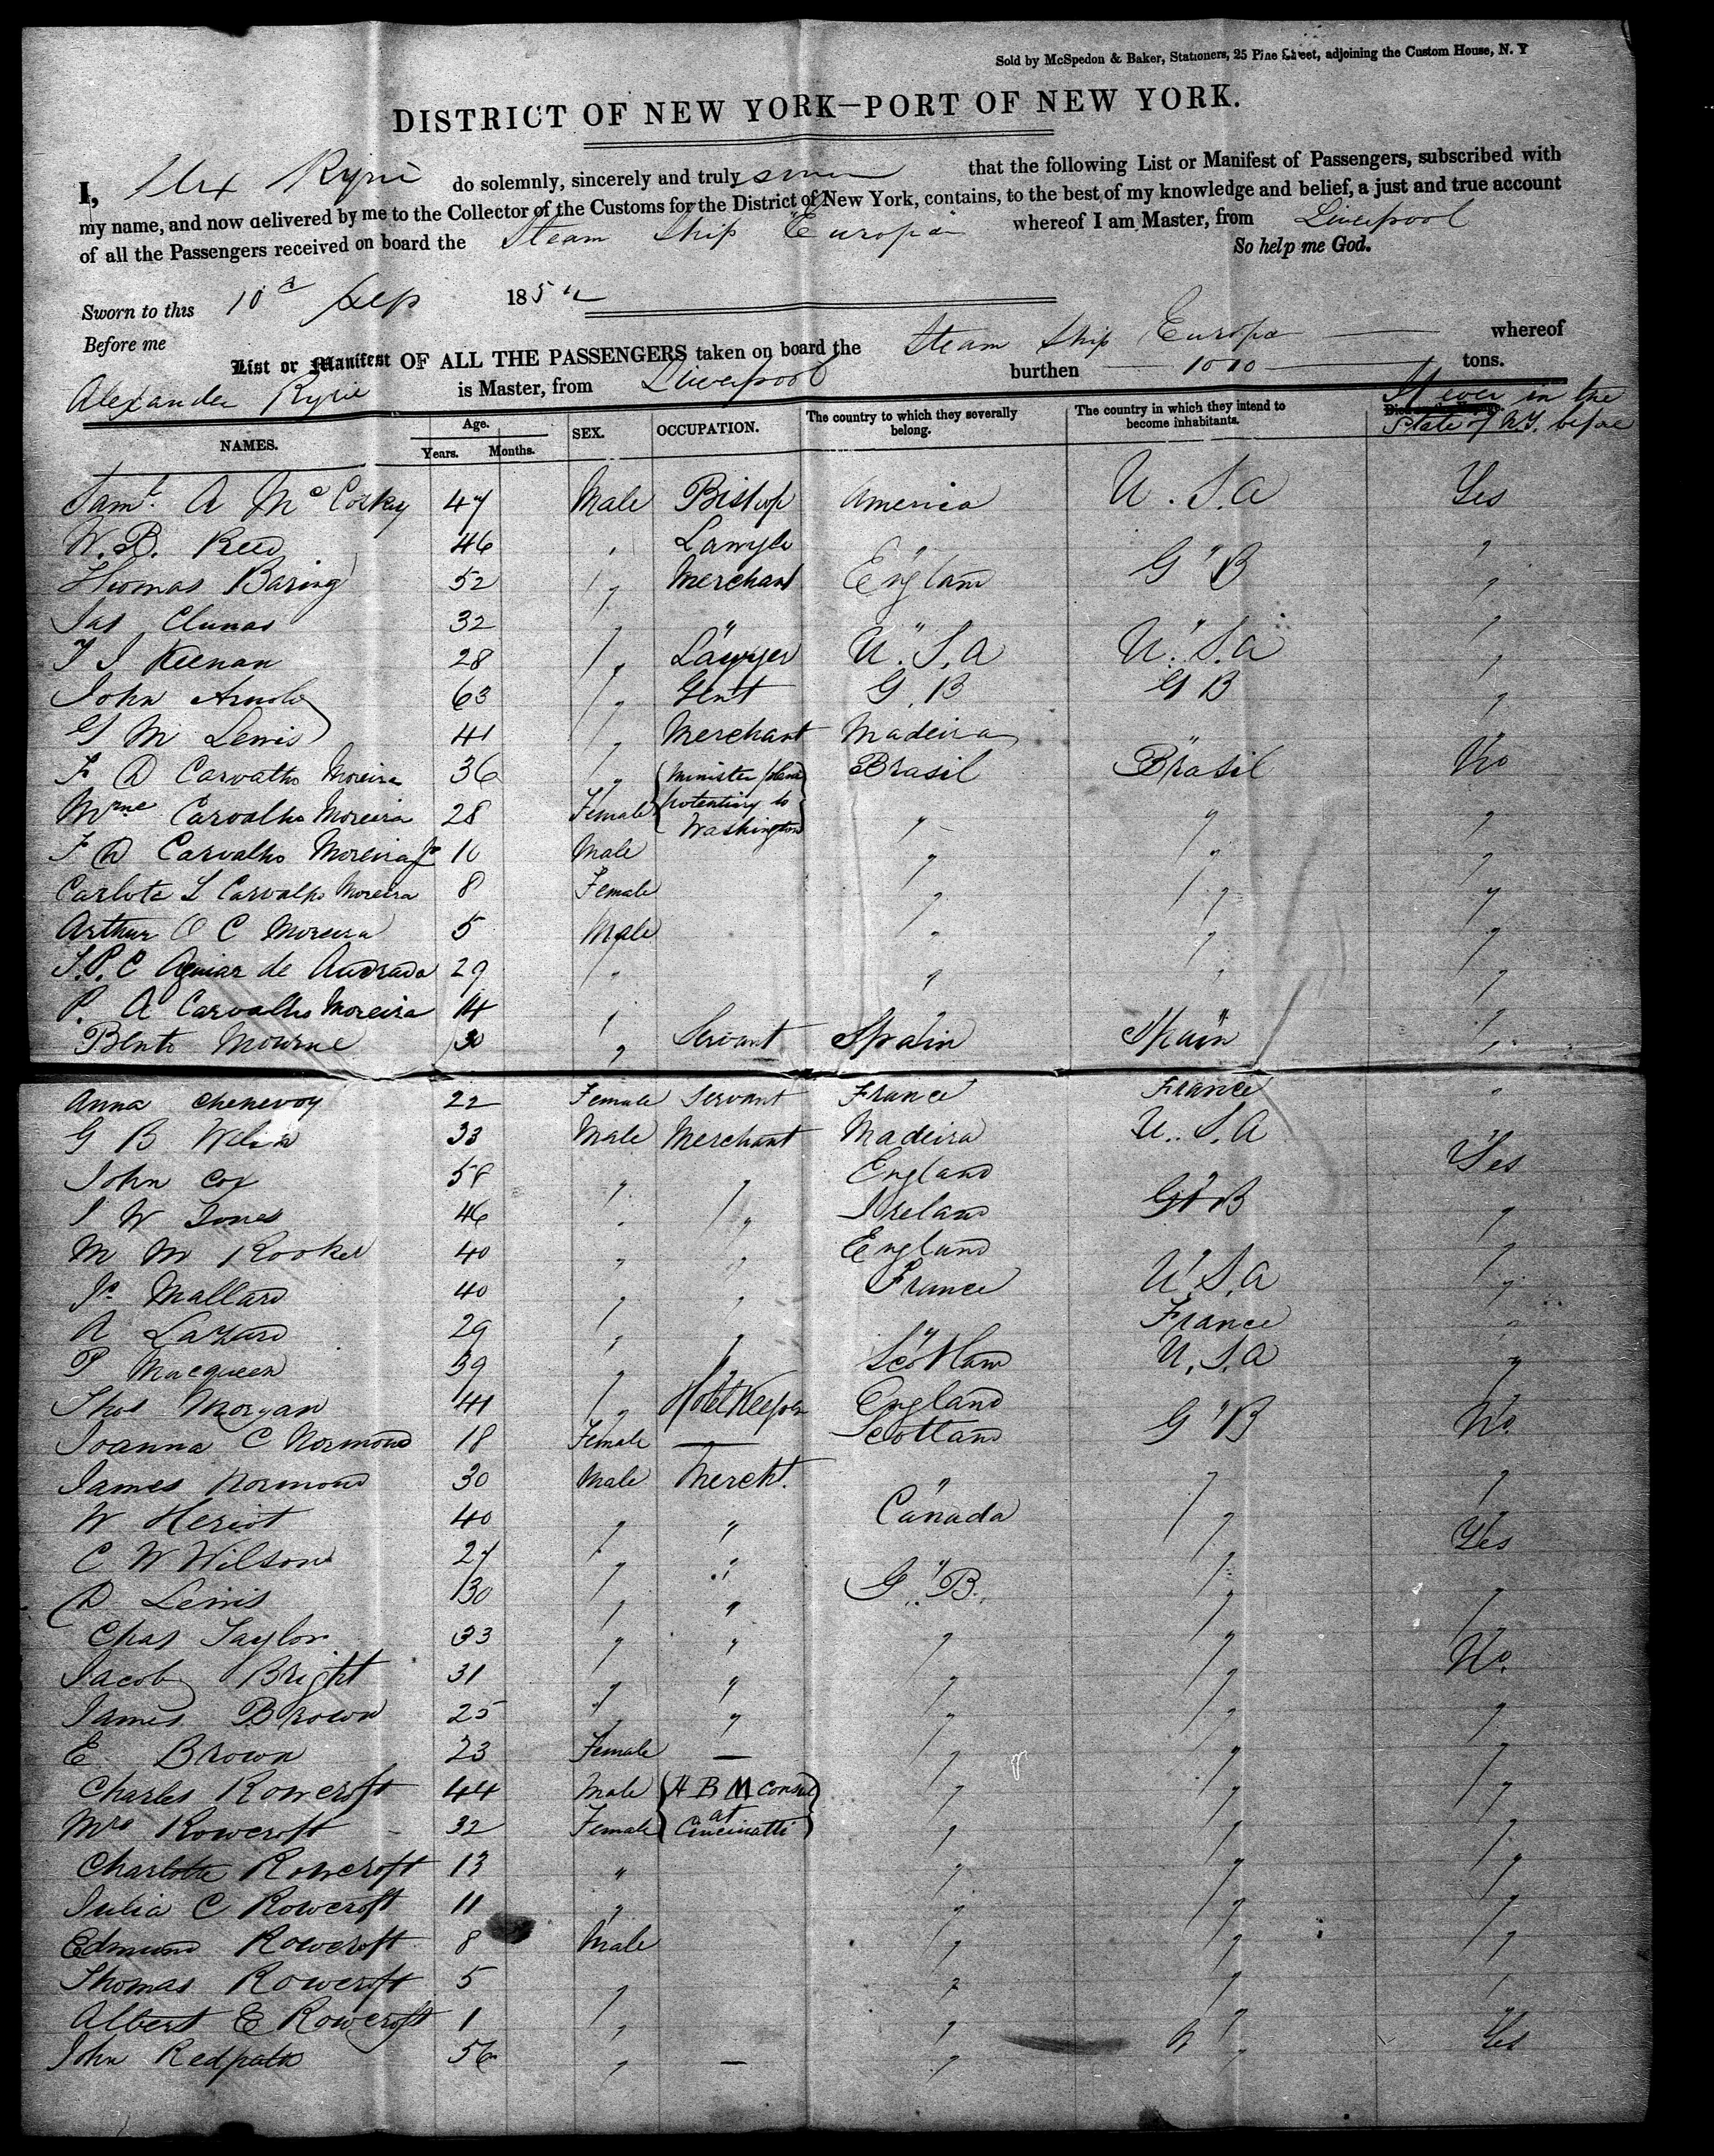 Sold by McSpedon & Baker, Stationers, 25 Pine Street, adjoining the Custom House, N. Y
DISTRICT OF NEW YORK—PORT OF NEW YORK.
I, Alex Ryrie do solemnly, sincerely and truly swear that the following List or Manifest of Passengers, subscribed with
my name, and now delivered by me to the Collector of the Customs for the District of New York, contains, to the best of my knowledge and belief, a just and true account
of all the Passengers received on board the Steam Ship Europa whereof I am Master, from Liverpool
So help me God.
Sworn to this 10th Sep 185
Before me
List or Manifest OF ALL THE PASSENGERS taken on board the Steam Ship Europa whereof
Alexander Ryrie is Master, from Liverpool burthen tons.
NAMES. Age. Years. Months. SEX. OCCUPATION. The country to which they severally belong. The country in which they intend to become inhabitants. If ever in the State of N.Y. before
Saml A McCoskry 47 Male Bishop America U.S.A Yes
W. B. Reed 46 " Lawyer " " "
Thomas Baring 52 " Merchant England G B "
Jas Clunas 32 " " " " "
T J Keenan 28 " Lawyer U.S.A U.S.A "
John Arnold 63 " Gent G.B G B "
G M Lewis 41 " Merchant Madeira " "
F D Carvalho Moreira 36 " Minister pleni Brasil Brasil No
Mme Carvalho Moreira 28 Female potentiary to Washington " " "
F D Carvalho Moreira Jr 10 Male " " "
Carlota L Carvalho Moreira 8 Female " " "
Arthur O C Moreira 5 Male " " "
J.P.C Aguiar de Andrada 29 " " " "
P. A Carvalho Moreira 14 " " " "
Bento Mourne 30 " Servant Spain Spain "
Anna Chenevoy 22 Female Servant France France "
G B 33 Male Merchant Madeira U.S.A
John Cox 58 " " England " Yes
J W Jones 46 " " Ireland G B "
M M Rooker 40 " " England " "
Jn Mallard 40 " " France U.S.A "
A Lazard 29 " " " France "
P Macqueen 39 " " Scotland U.S.A "
Thos Morgan 41 " Hotel Keeper England " "
Joanna C Normond 18 Female — Scotland G B No
James Normond 30 Male Mercht. " " "
W Heriot 40 " " Canada " Yes
C W Wilson 27 " " " " "
D Lewis 30 " " G.B. " "
Chas Taylor 33 " " " " "
Jacob Bright 31 " " " " No
James Brown 25 " " " " "
E Brown 23 Female — " " "
Charles Rowcroft 44 Male H B M Consul " " "
Mrs Rowcroft 32 Female at Cincinatti " " "
Charlotte Rowcroft 13 " " " "
Julia C Rowcroft 11 " " " "
Edmund Rowcroft 8 Male " " "
Thomas Rowcroft 5 " " " "
Albert E Rowcroft 1 " " " "
John Redpath 56 " — " " Yes